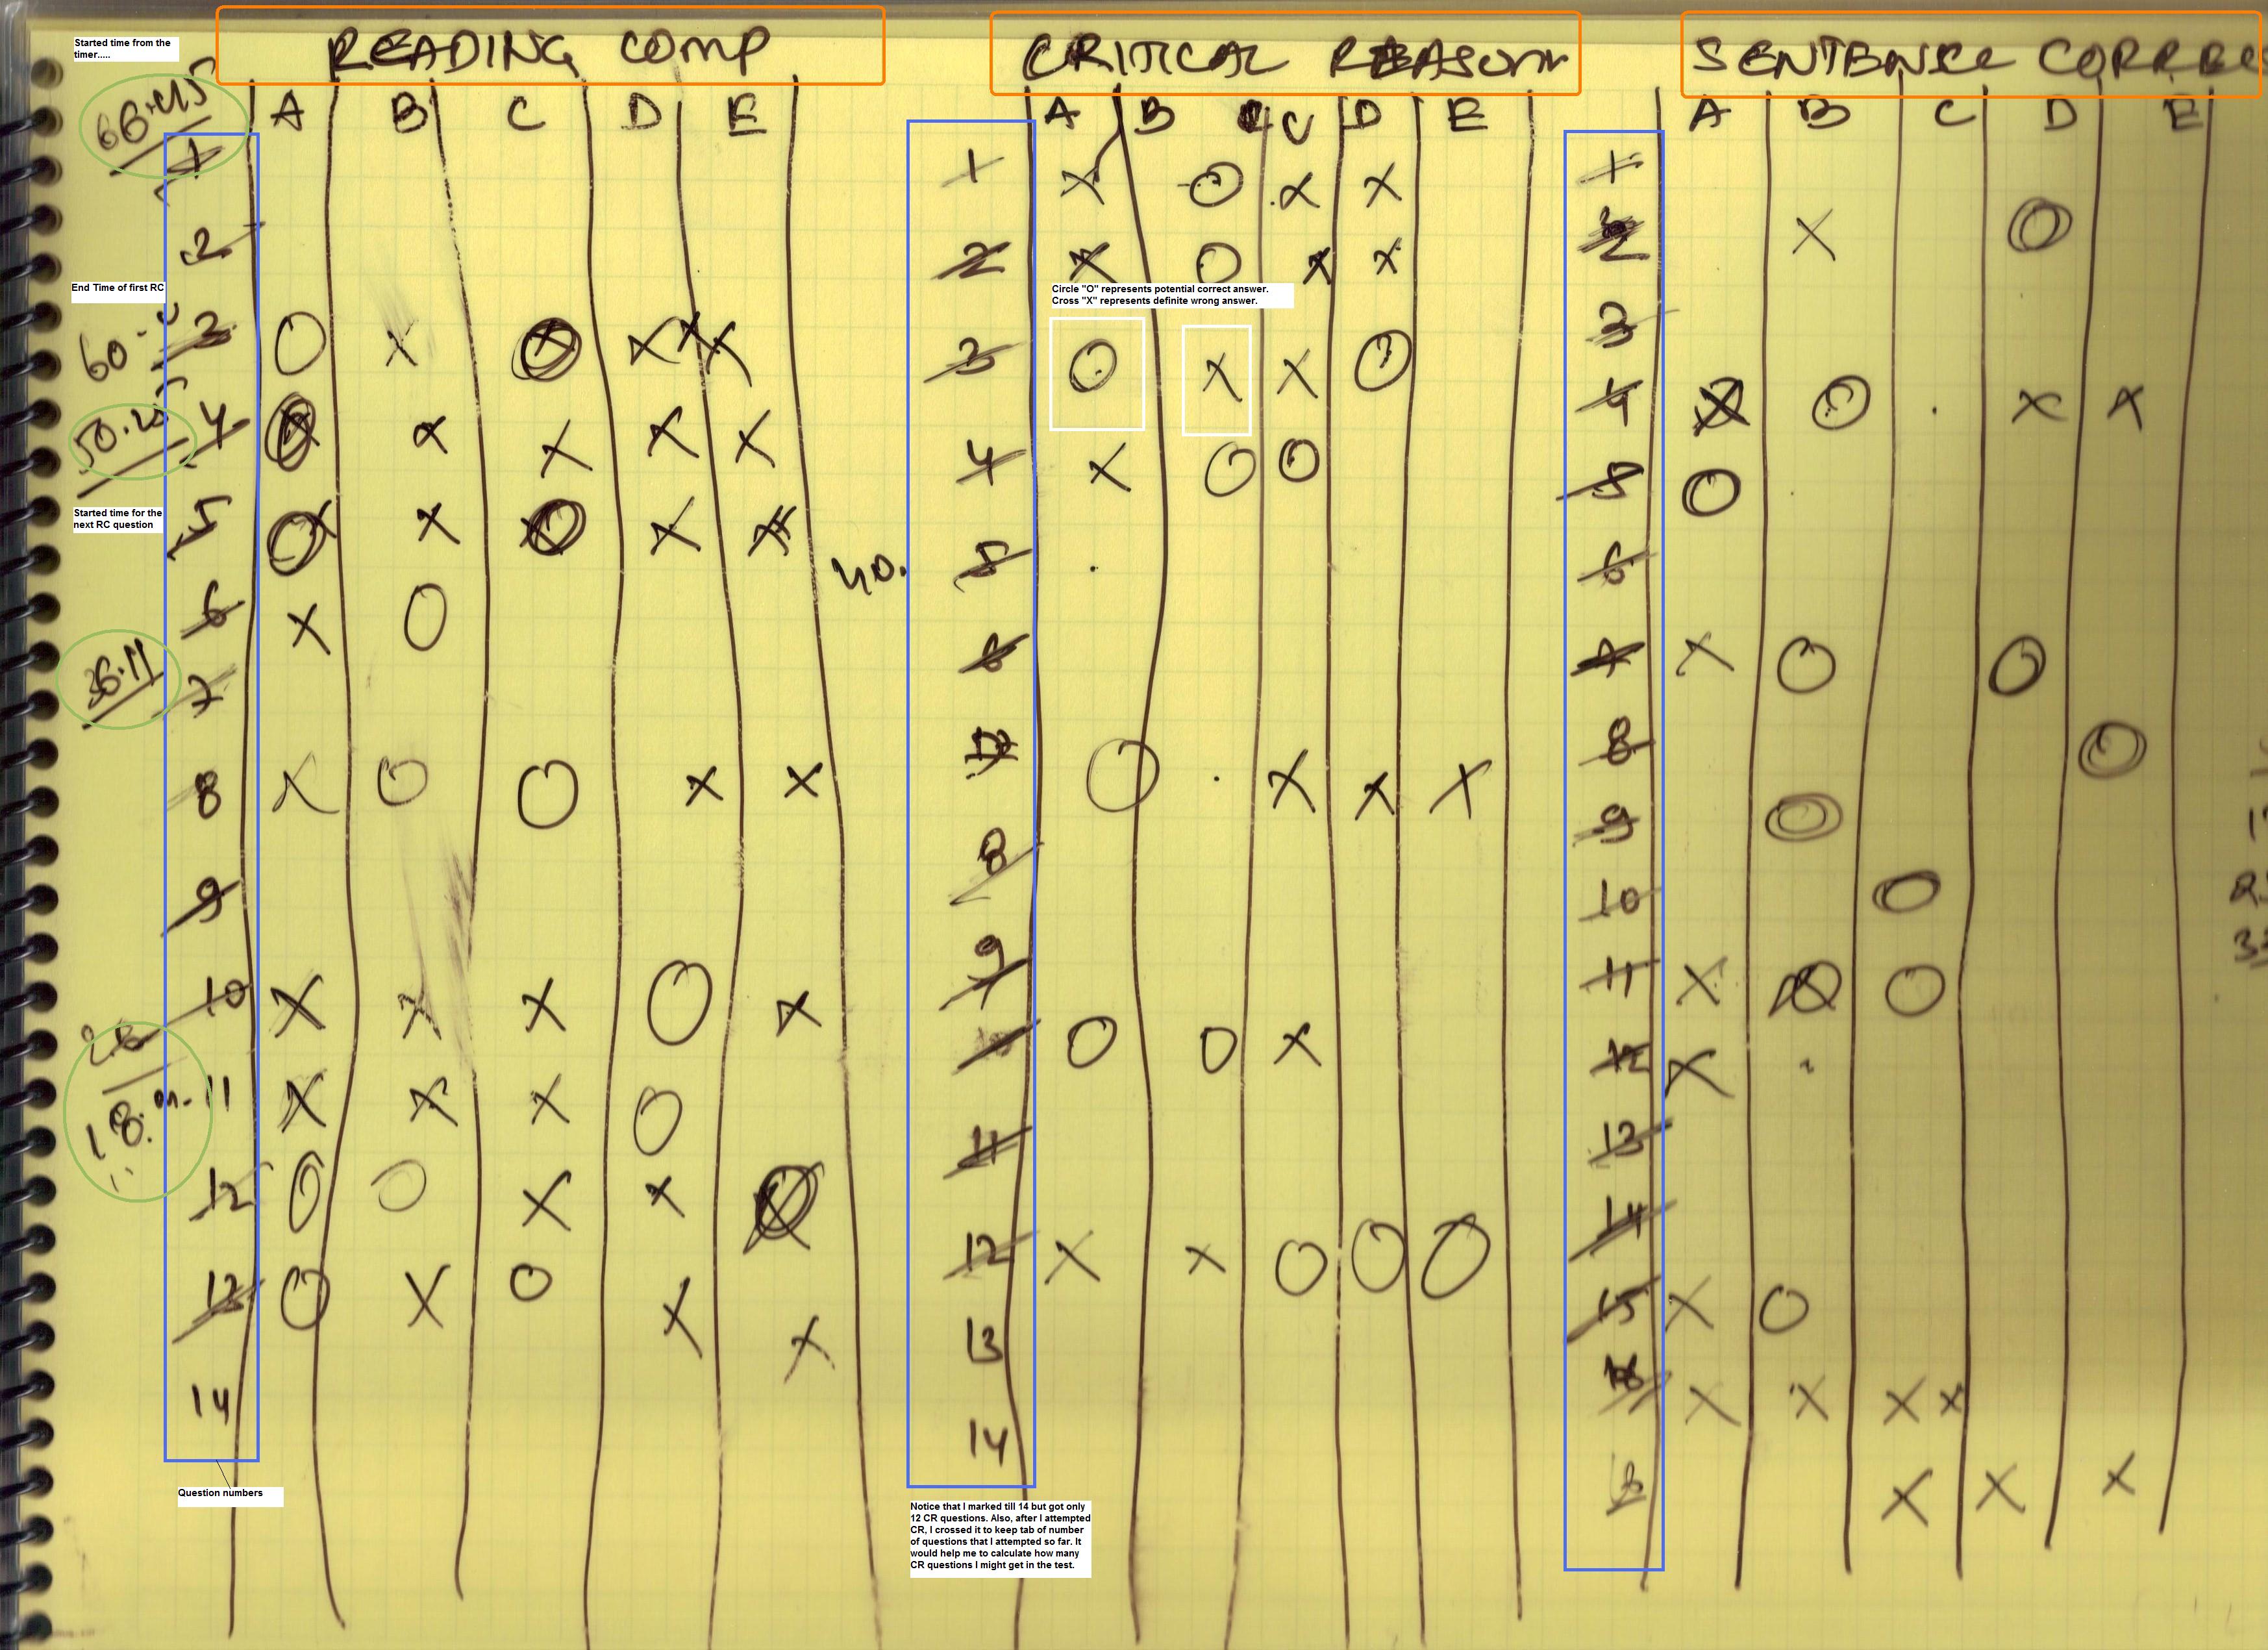 Started time from the
timer.....
READING COMP
66:45
A B C D E
1
2
End Time of first RC
60
3 O X X X X
4 X X X X
50:45
Started time for the
next RC question
5 O X O X X
6 X O
36:11
7
8 X O O X X
9
10 X X X O X
26
18:
11 X X X O
12 O O X X
13 O X O X X
14
Question numbers
40.
CRITICAL REASONN
A B C D E
1 X O X X
2 X O X X
Circle "O" represents potential correct answer.
Cross "X" represents definite wrong answer.
3 O X X O
4 X O O
5
6
7 O X X X
8
9
10 O O X
11
12 X X O O O
13
14
Notice that I marked till 14 but got only
12 CR questions. Also, after I attempted
CR, I crossed it to keep tab of number
of questions that I attempted so far. It
would help me to calculate how many
CR questions I might get in the test.
SENTENCE CORREC
A B C D E
1
2 X O
3
4 X O X X
5 O
6
7 X O O
8 O
9 O
10 O
11 X O
12 X
13
14
15 X O
16 X X X X
X X X